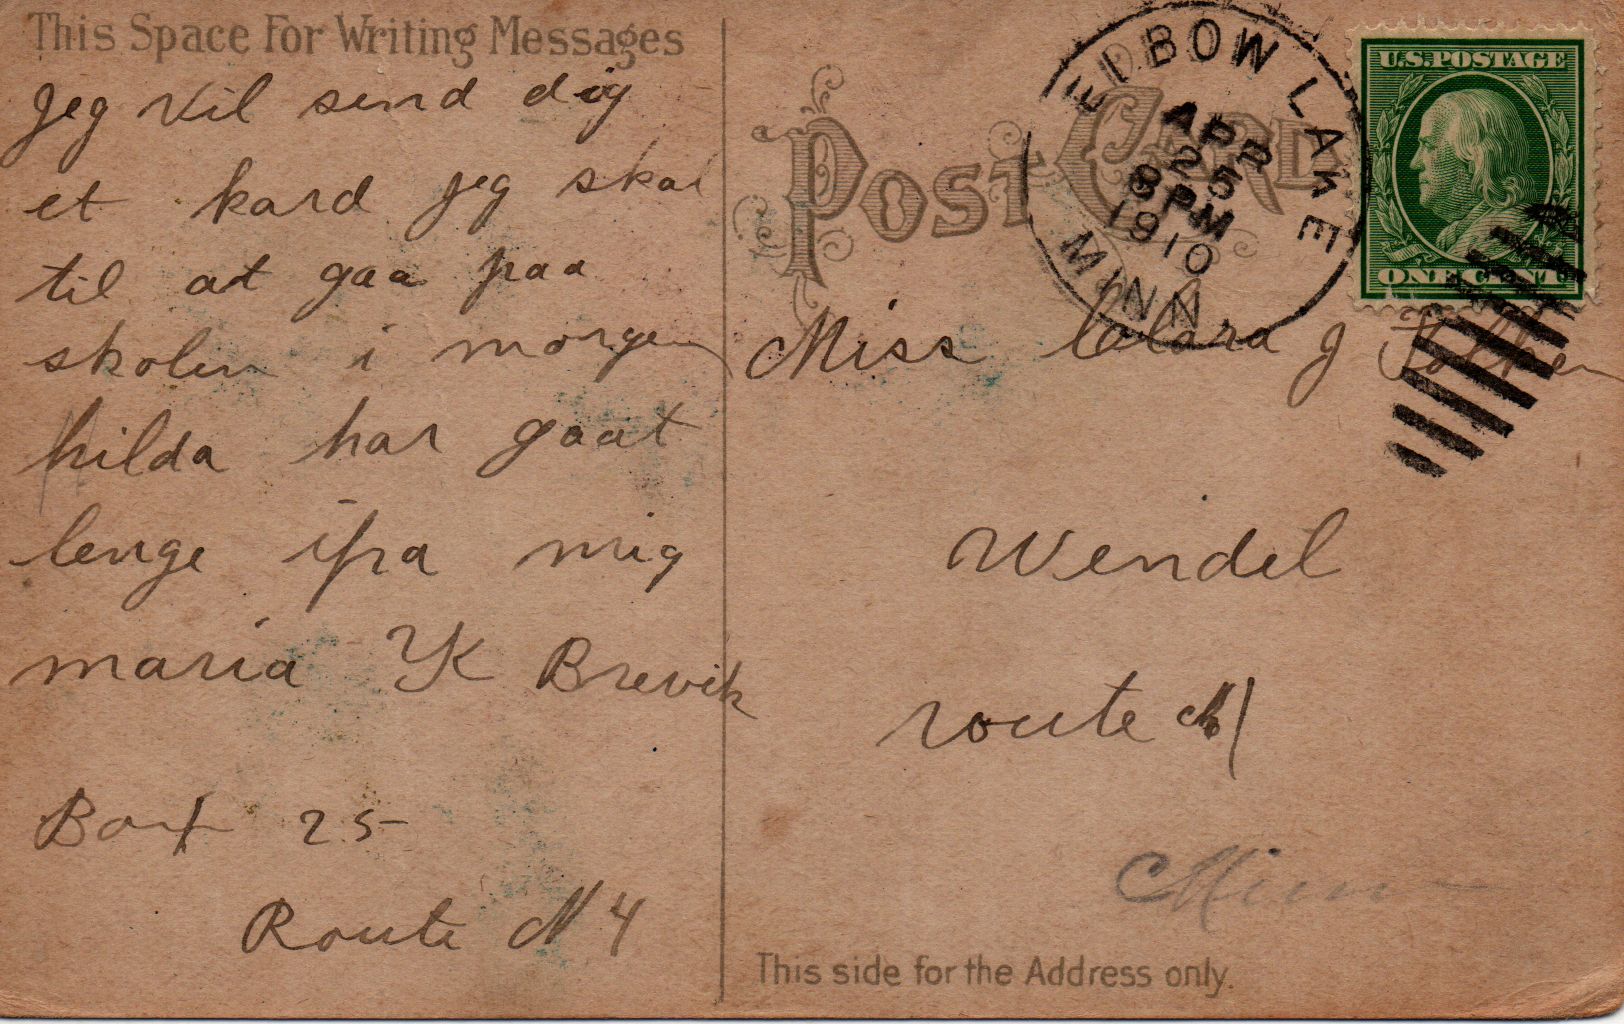 This Space For Writing Messages
Jeg vil send dig
et kard jeg skal
til at gaa paa
skolen i morgen
hilda har gaat
lenge ifra mig
maria K Brevik
Box 25
Route N 4
POST CARD
ELBOW LAKE
APR
25
8 PM
1910
MINN.
U.S. POSTAGE
ONE CENT
Miss Clara J
Wendel
route N 1
Minn
This side for the Address only.